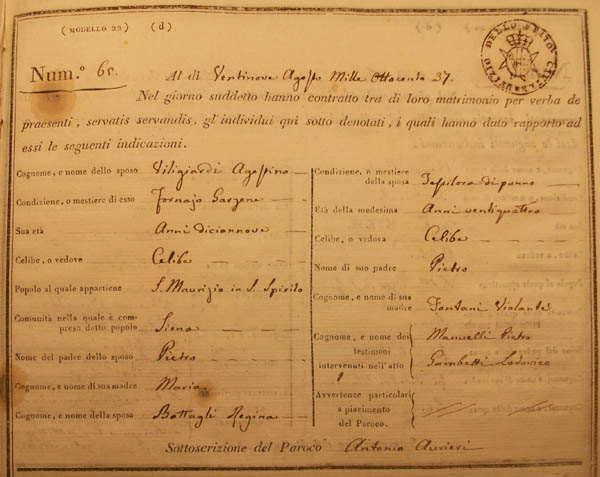 ( MODELLO 25 ) (d)
Num.° 60.
Al dì Ventinove Agosto Mille Ottocento 37.
Nel giorno suddetto hanno contratto tra di loro matrimonio per verba de
praesenti, servatis servandis, gl' individui qui sotto denotati, i quali hanno dato rapporto ad
essi le seguenti indicazioni.
Cognome, e nome dello sposo Viligiardi Agostino
Condizione, o mestiere di esso Fornajo Garzone
Sua età Anni diciannove
Celibe, o vedovo Celibe
Popolo al quale appartiene S. Maurizio in S. Spirito
Comunità nella quale è com-
preso detto popolo Siena
Nome del padre dello sposo Pietro
Cognome, e nome di sua madre Maria
Cognome, e nome della sposa Battagli Regina
Condizione, o mestiere
della sposa Tessitora di panno
Età della medesima Anni ventiquattro
Celibe, o vedova Celibe
Nome di suo padre Pietro
Cognome, e nome di sua
madre Fontani Violante
Cognome, e nome dei
testimoni
intervenuti nell'atto
Manuelli Pietro
Lodovico
Avvertenze particolari
a piacimento
del Paroco.
Sottoscrizione del Paroco Antonio Aurieri